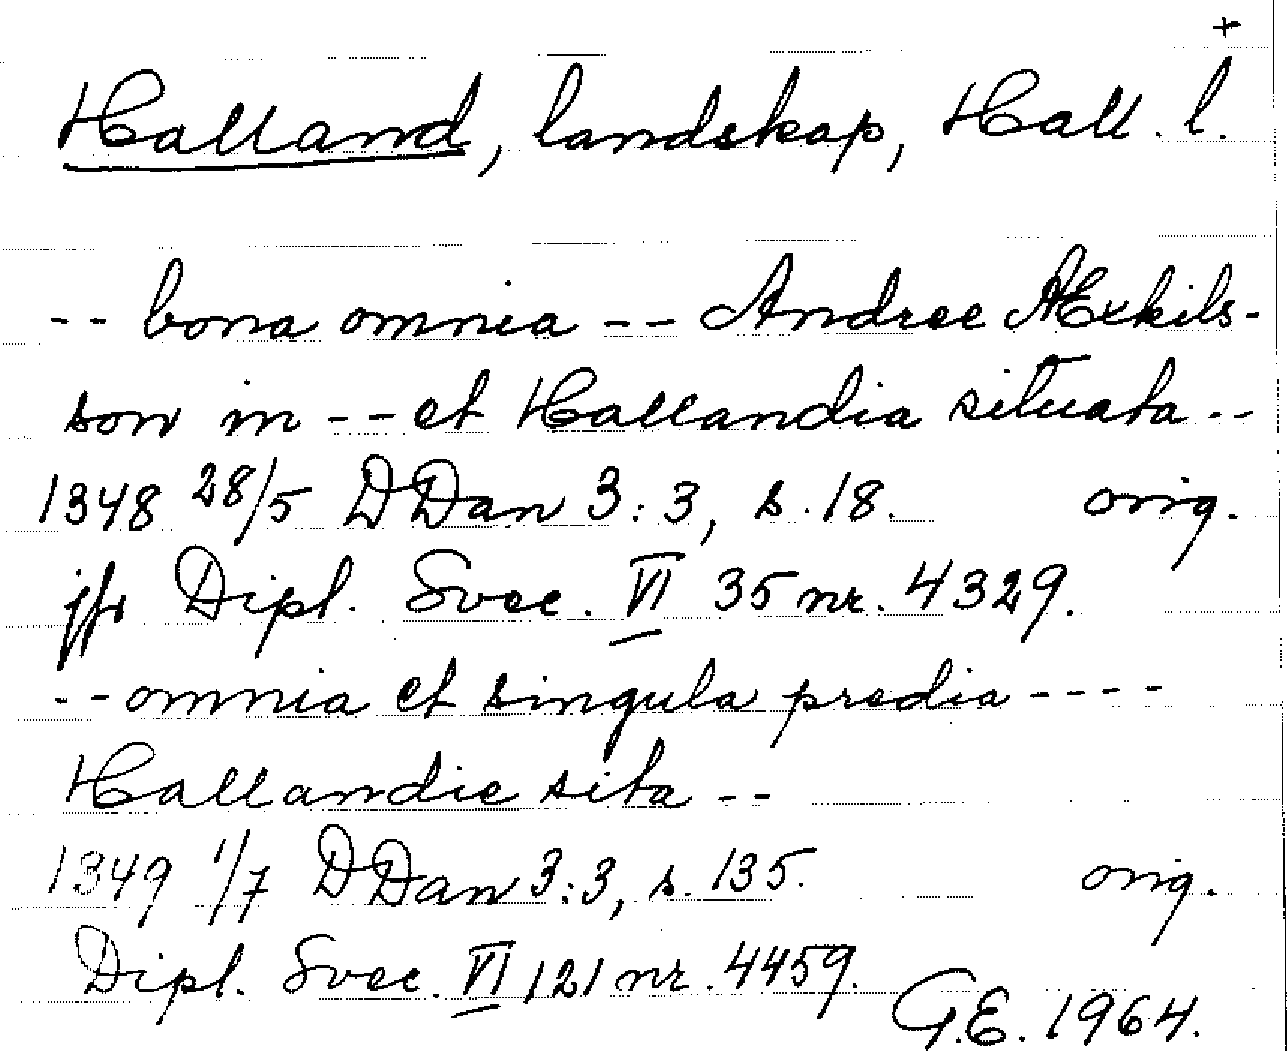 +
Halland, landskap, Hall. l.
-- bona omnia -- Andree Æskils-
son in -- et Hallandia situata --
1348 28/5 DDan 3:3, s. 18. orig.
jfr Dipl. Svec. VI 35 nr. 4329.
-- omnia et singula predia ----
Hallandie sita --
1349 1/7 DDan 3:3, s. 135. orig.
Dipl. Svec. VI 121 nr. 4459.
G.E. 1964.